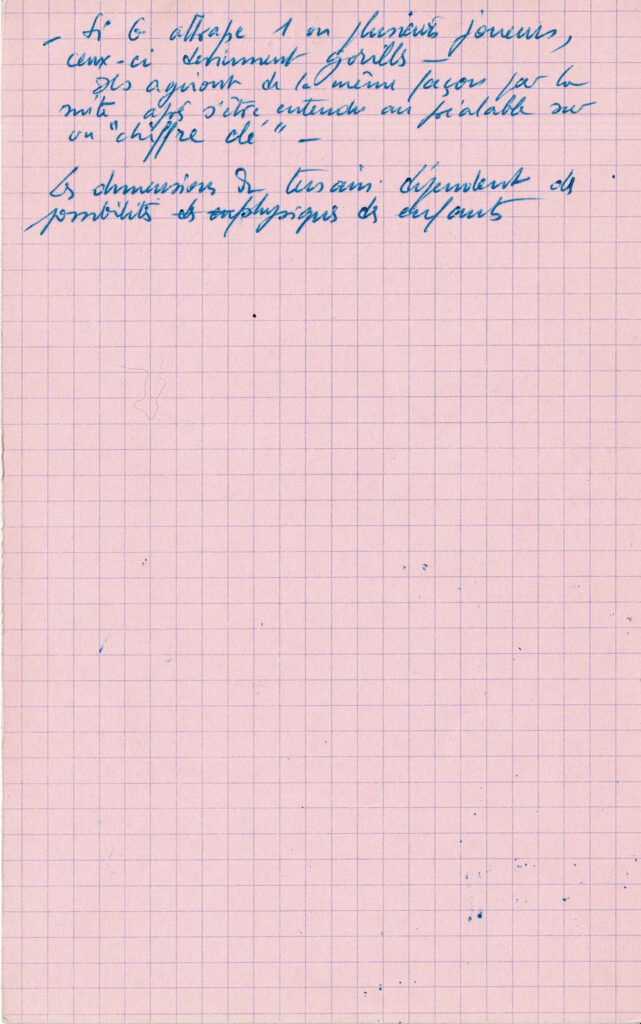 - Si G attrape 1 ou plusieurs joueurs,
ceux-ci deviennent gorilles -
Ils agiront de la même façon par la
suite après s'être entendu au préalable sur
un "chiffre clé" -
Les dimensions du terrain dépendent des
possibilités des physiques des enfants